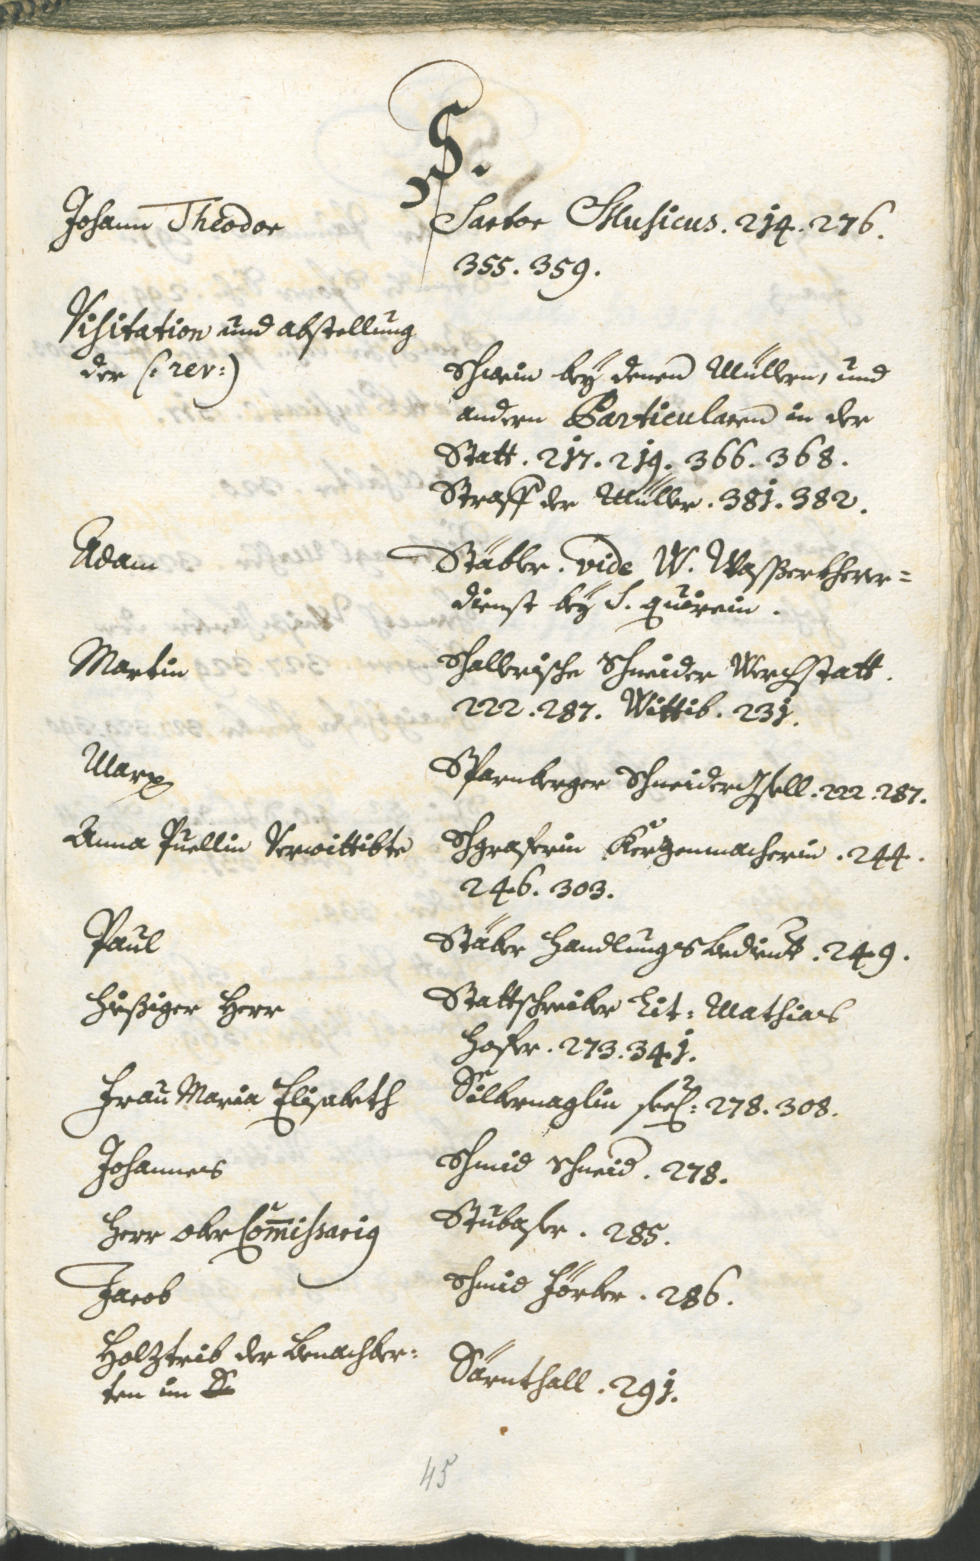 S.
Johann Theodor Sartor Musicus. 214. 276.
355. 359.
Visitation und abstellung
der (: rev:) Schwein beÿ denen Müllern, und
andern Particularen in der
Statt. 217. 219. 366. 368.
Straff der Müller. 381. 382.
Adam Stäbler. vide W. Wasserkherer=
dienst beÿ S. Quirein.
Martin Schallerische Schneider Werchstatt.
222. 287. Wittib. 231.
Marx Starnberger Schneider Gsell. 222. 287.
Anna Puellin Verwittibte Schgraferin Kerzenmacherin. 244.
246. 303.
Paul Stäber Handlungs bedient. 249.
hießiger Herr Stattschreiber Lit: Mathias
Hofer. 273. 341.
Frau Maria Elisabeth Silbernaglin seel: 278. 308.
Johannes Schmid Schneid. 278.
Herr ober Commissarius Stubaser. 285.
Jacob Schmid Förber. 286.
Holztrib der benachber=
ten im Sarnthall. 291.
45